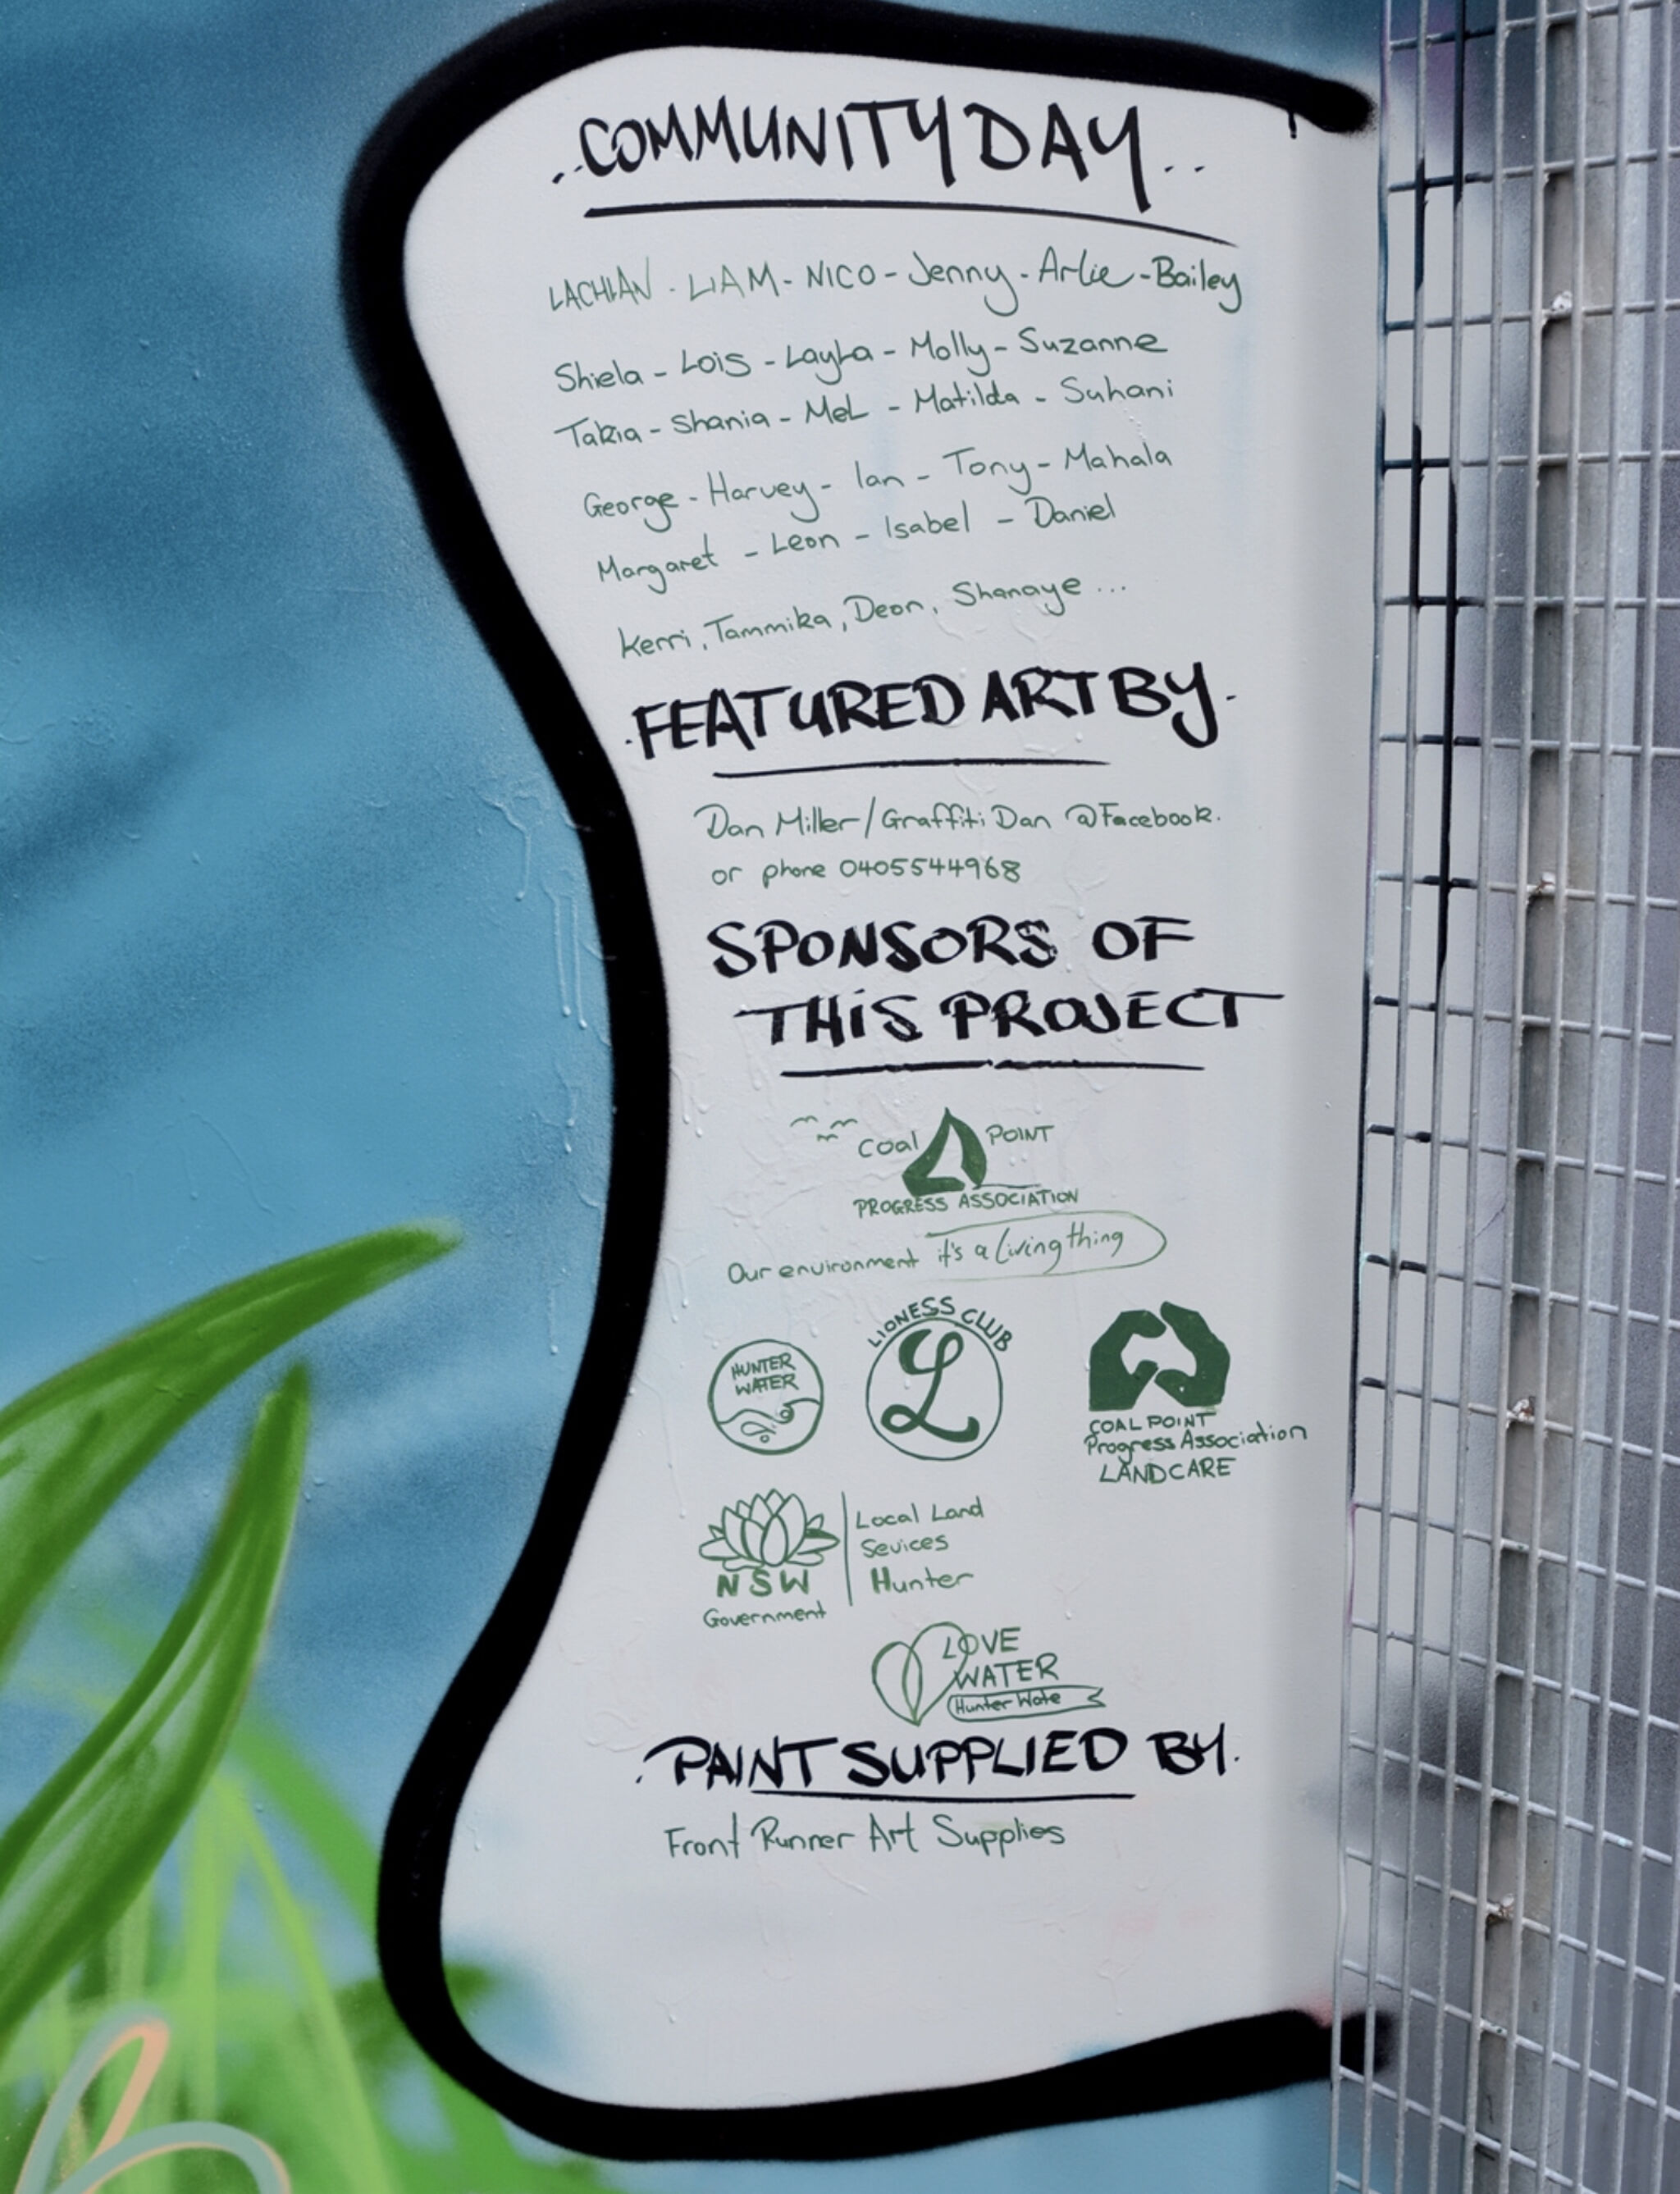 ..COMMUNITY DAY..
LACHLAN - LIAM - NICO - Jenny - Arlie - Bailey
Shiela - Lois - Layla - Molly - Suzanne
Takia - Shania - Mel - Matilda - Suhani
George - Harvey - Ian - Tony - Mahala
Margaret - Leon - Isabel - Daniel
Kerri, Tammika, Deon, Shanaye ...
.FEATURED ART BY.
Dan Miller/Graffiti Dan @Facebook.
or phone 0405544968
SPONSORS OF
THIS PROJECT
Coal POINT
PROGRESS ASSOCIATION
Our environment it's a living thing
HUNTER
WATER
LIONESS CLUB
L
COAL POINT
Progress Association
LANDCARE
NSW
Government
Local Land
Sevices
Hunter
LOVE
WATER
Hunter Wate
.PAINT SUPPLIED BY.
Front Runner Art Supplies